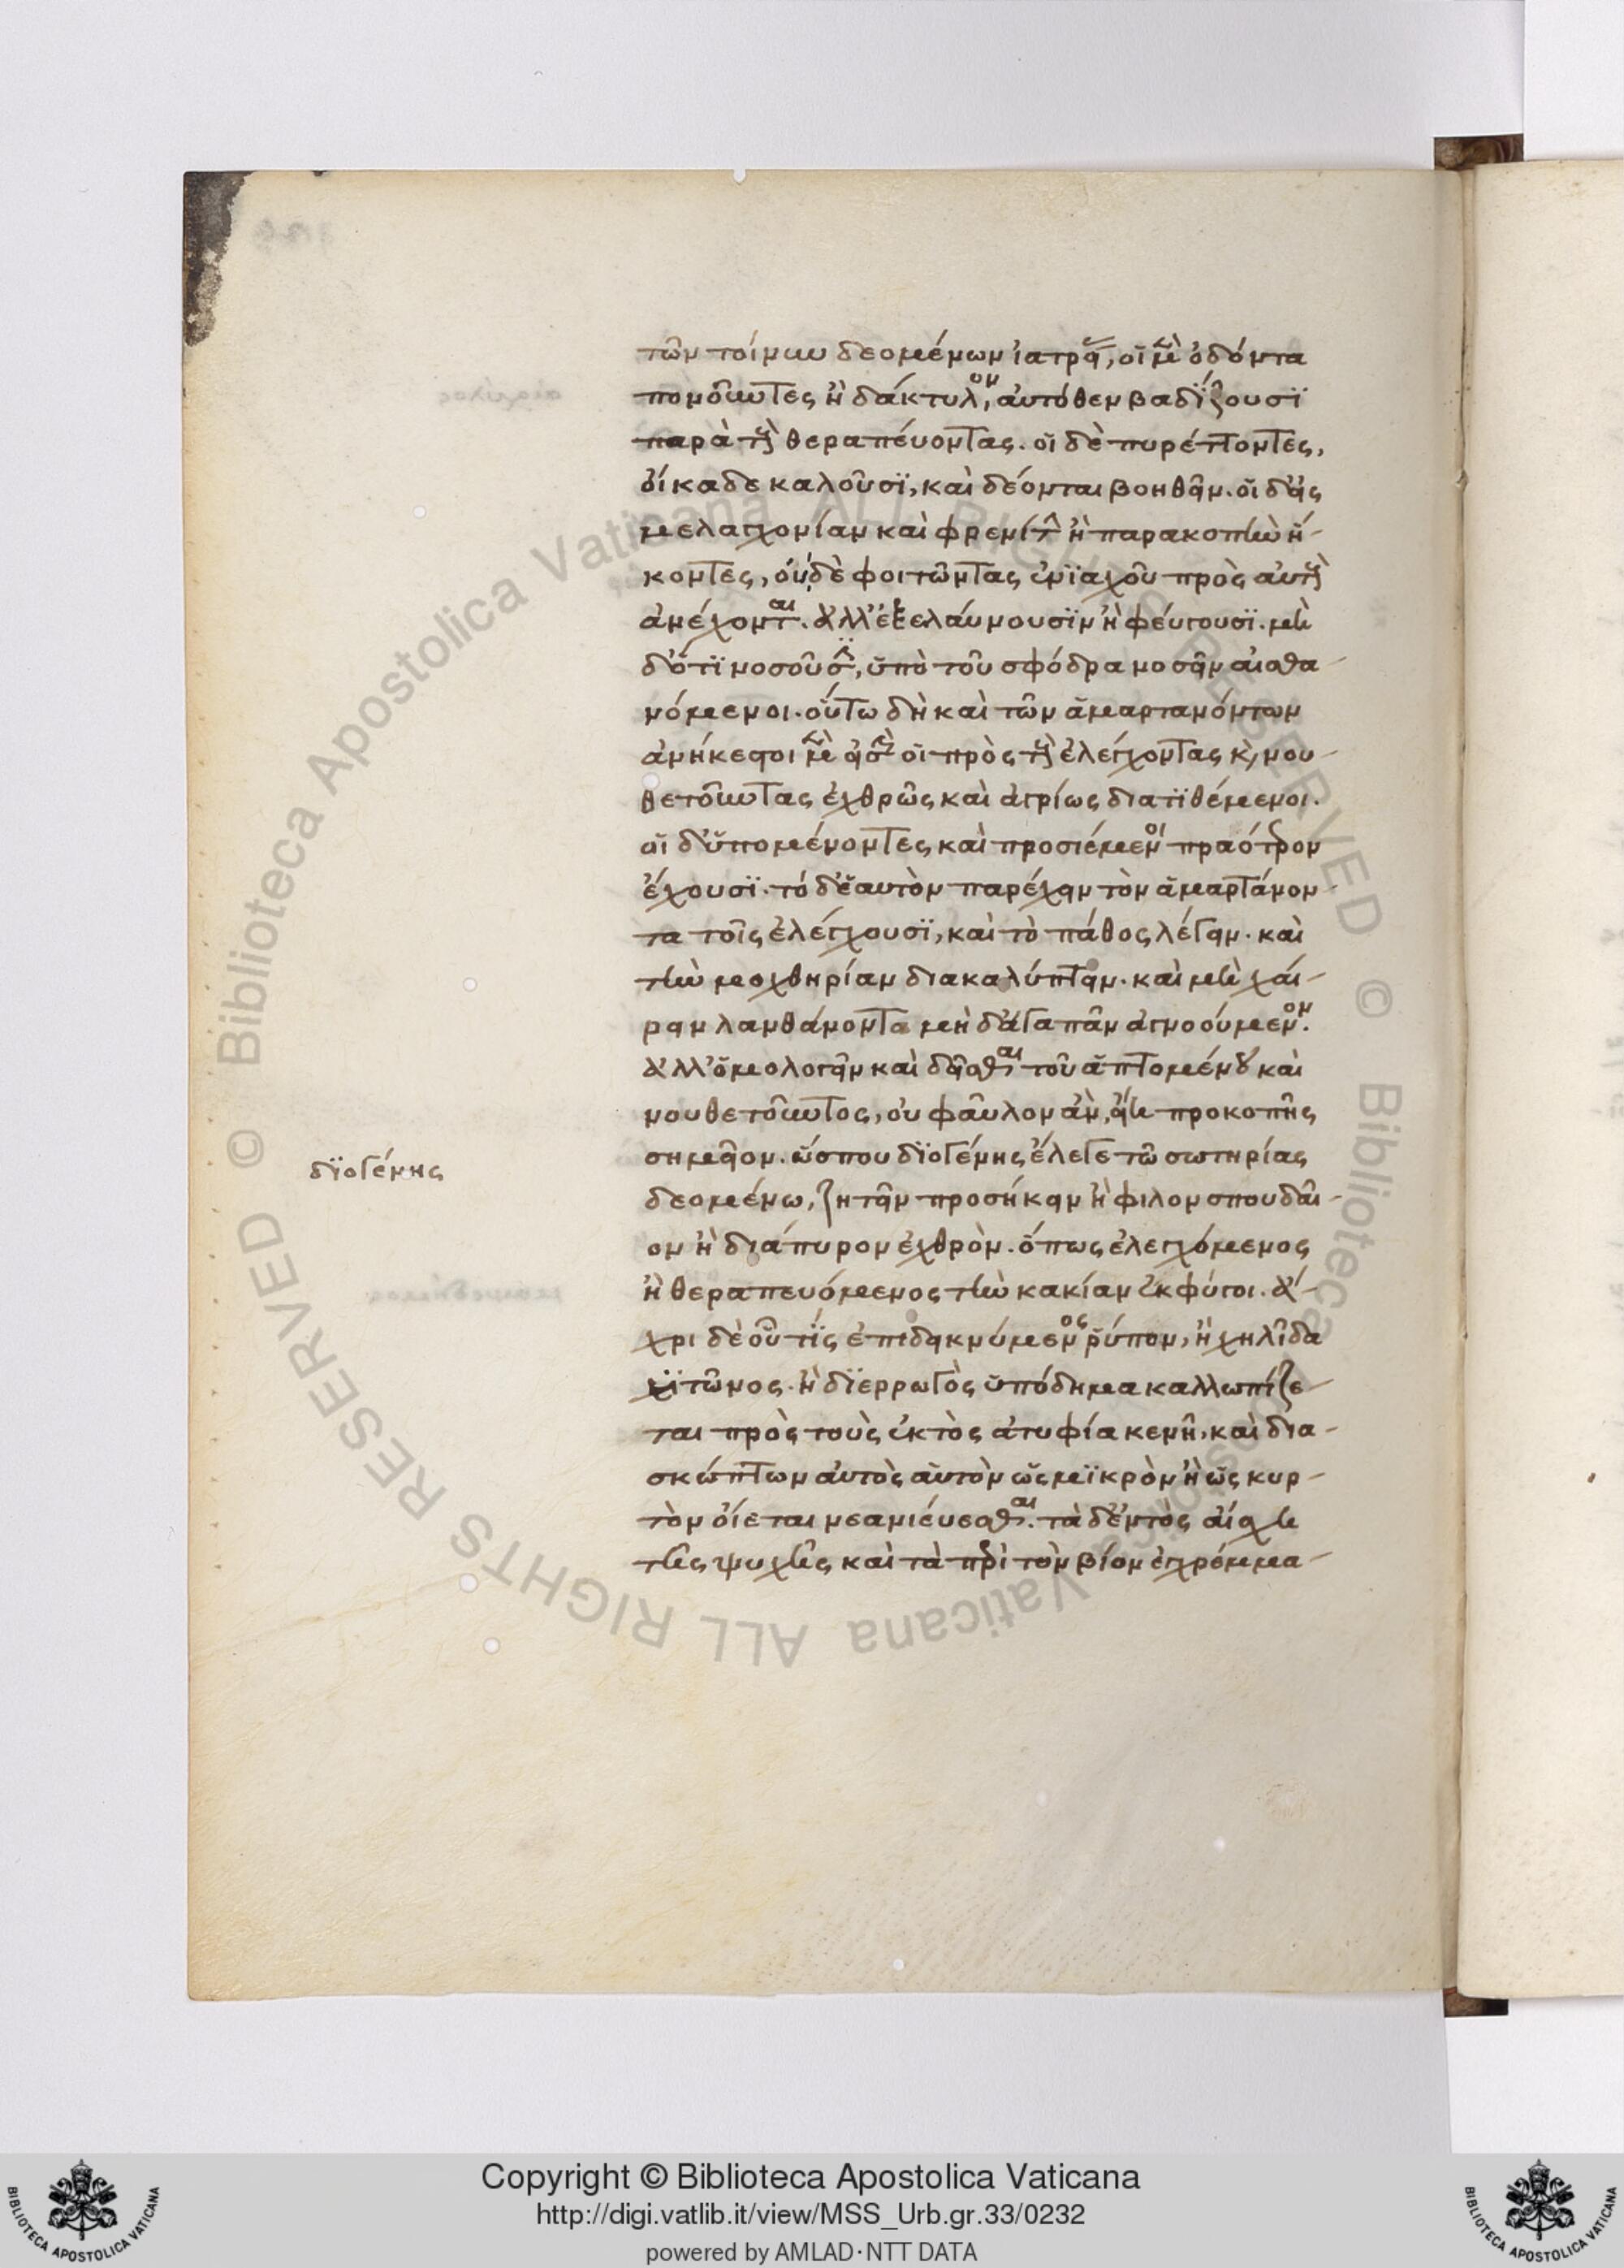 τῶν τοίνυν δεομένων ἰατρείας, οἱ μὲν ὀδόντα
πονοῦντες ἢ δάκτυλον, αὐτόθεν βαδίζουσϊ
παρὰ τοὺς θεραπεύοντας. οἱ δὲ πυρέττοντες,
οἴκαδε καλοῦσϊ, καὶ δέονται βοηθεῖν. οἱ δ' εἰς
μελαγχολίαν καὶ φρενίτιν ἢ παρακοπὴν ἥ-
κοντες, οὐδὲ φοιτῶντας ἐνϊαχοῦ πρὸς αὐτοὺς
ἀνέχονται. ἀλλ' ἐξελαύνουσϊν ἢ φεύγουσϊ. μὴ
δ' ὅτϊ νοσοῦσϊν, ὑπὸ τοῦ σφόδρα νοσεῖν αἰσθα-
νόμενοι. οὕτω δὴ καὶ τῶν ἁμαρτανόντων
ἀνήκεστοι μὲν εἰσὶν οἱ πρὸς τοὺς ἐλέγχοντας καὶ νου-
θετοῦντας ἐχθρῶς καὶ ἀγρίως διατϊθέμενοι.
οἱ δ' ὑπομένοντες καὶ προσιέμενοι πραότερον
ἔχουσϊ. τό δ' ἑαυτὸν παρέχειν τὸν ἁμαρτάνον-
τα τοῖς ἐλέγχουσϊ, καὶ τὸ πάθος λέγειν. καὶ
τὴν μοχθηρίαν διακαλύπτειν. καὶ μὴ χαί-
ρειν λανθάνοντα μὴ δ' ἀγαπᾶν ἀγνοούμενον.
ἀλλ' ὁμολογεῖν καὶ δεῖσθαι τοῦ ἁπτομένου καὶ
νουθετοῦντος, οὐ φαῦλον ἂν, εἴη προκοπῆς
σημεῖον. ὥσπου δϊογένης ἔλεγε τῶ σωτηρίας
δεομένω, ζητεῖν προσήκειν ἢ φίλον σπουδαῖ-
ον ἢ διάπυρον ἐχθρὸν. ὅπως ἐλεγχόμενος
ἢ θεραπευόμενος τὴν κακίαν ἐκφύγοι. ἄ-
χρι δὲ οὗ τϊς ἐπιδεικνύμενος ῥύπον, ἢ χηλῖδα
χϊτῶνος. ἢ δϊερρωγὸς ὑπόδημα καλλωπίζε-
ται πρὸς τοὺς ἐκτὸς ἀτυφία κενῆ, καὶ δια-
σκώπτων αὐτὸς αὑτὸν ὡς μϊκρὸν ἢ ὡς κυρ-
τὸν οἴεται νεανιεύεσθαι. τὰ δ' ἐντὸς αἴσχη
τῆς ψυχῆς καὶ τὰ περὶ τὸν βίον ἐχρόμμα-
δϊογένης
Copyright © Biblioteca Apostolica Vaticana
http://digi.vatlib.it/view/MSS_Urb.gr.33/0232
powered by AMLAD·NTT DATA
BIBLIOTECA APOSTOLICA VATICANA
BIBLIOTECA APOSTOLICA VATICANA
© Biblioteca Apostolica Vaticana ALL RIGHTS RESERVED
© Biblioteca Apostolica Vaticana ALL RIGHTS RESERVED